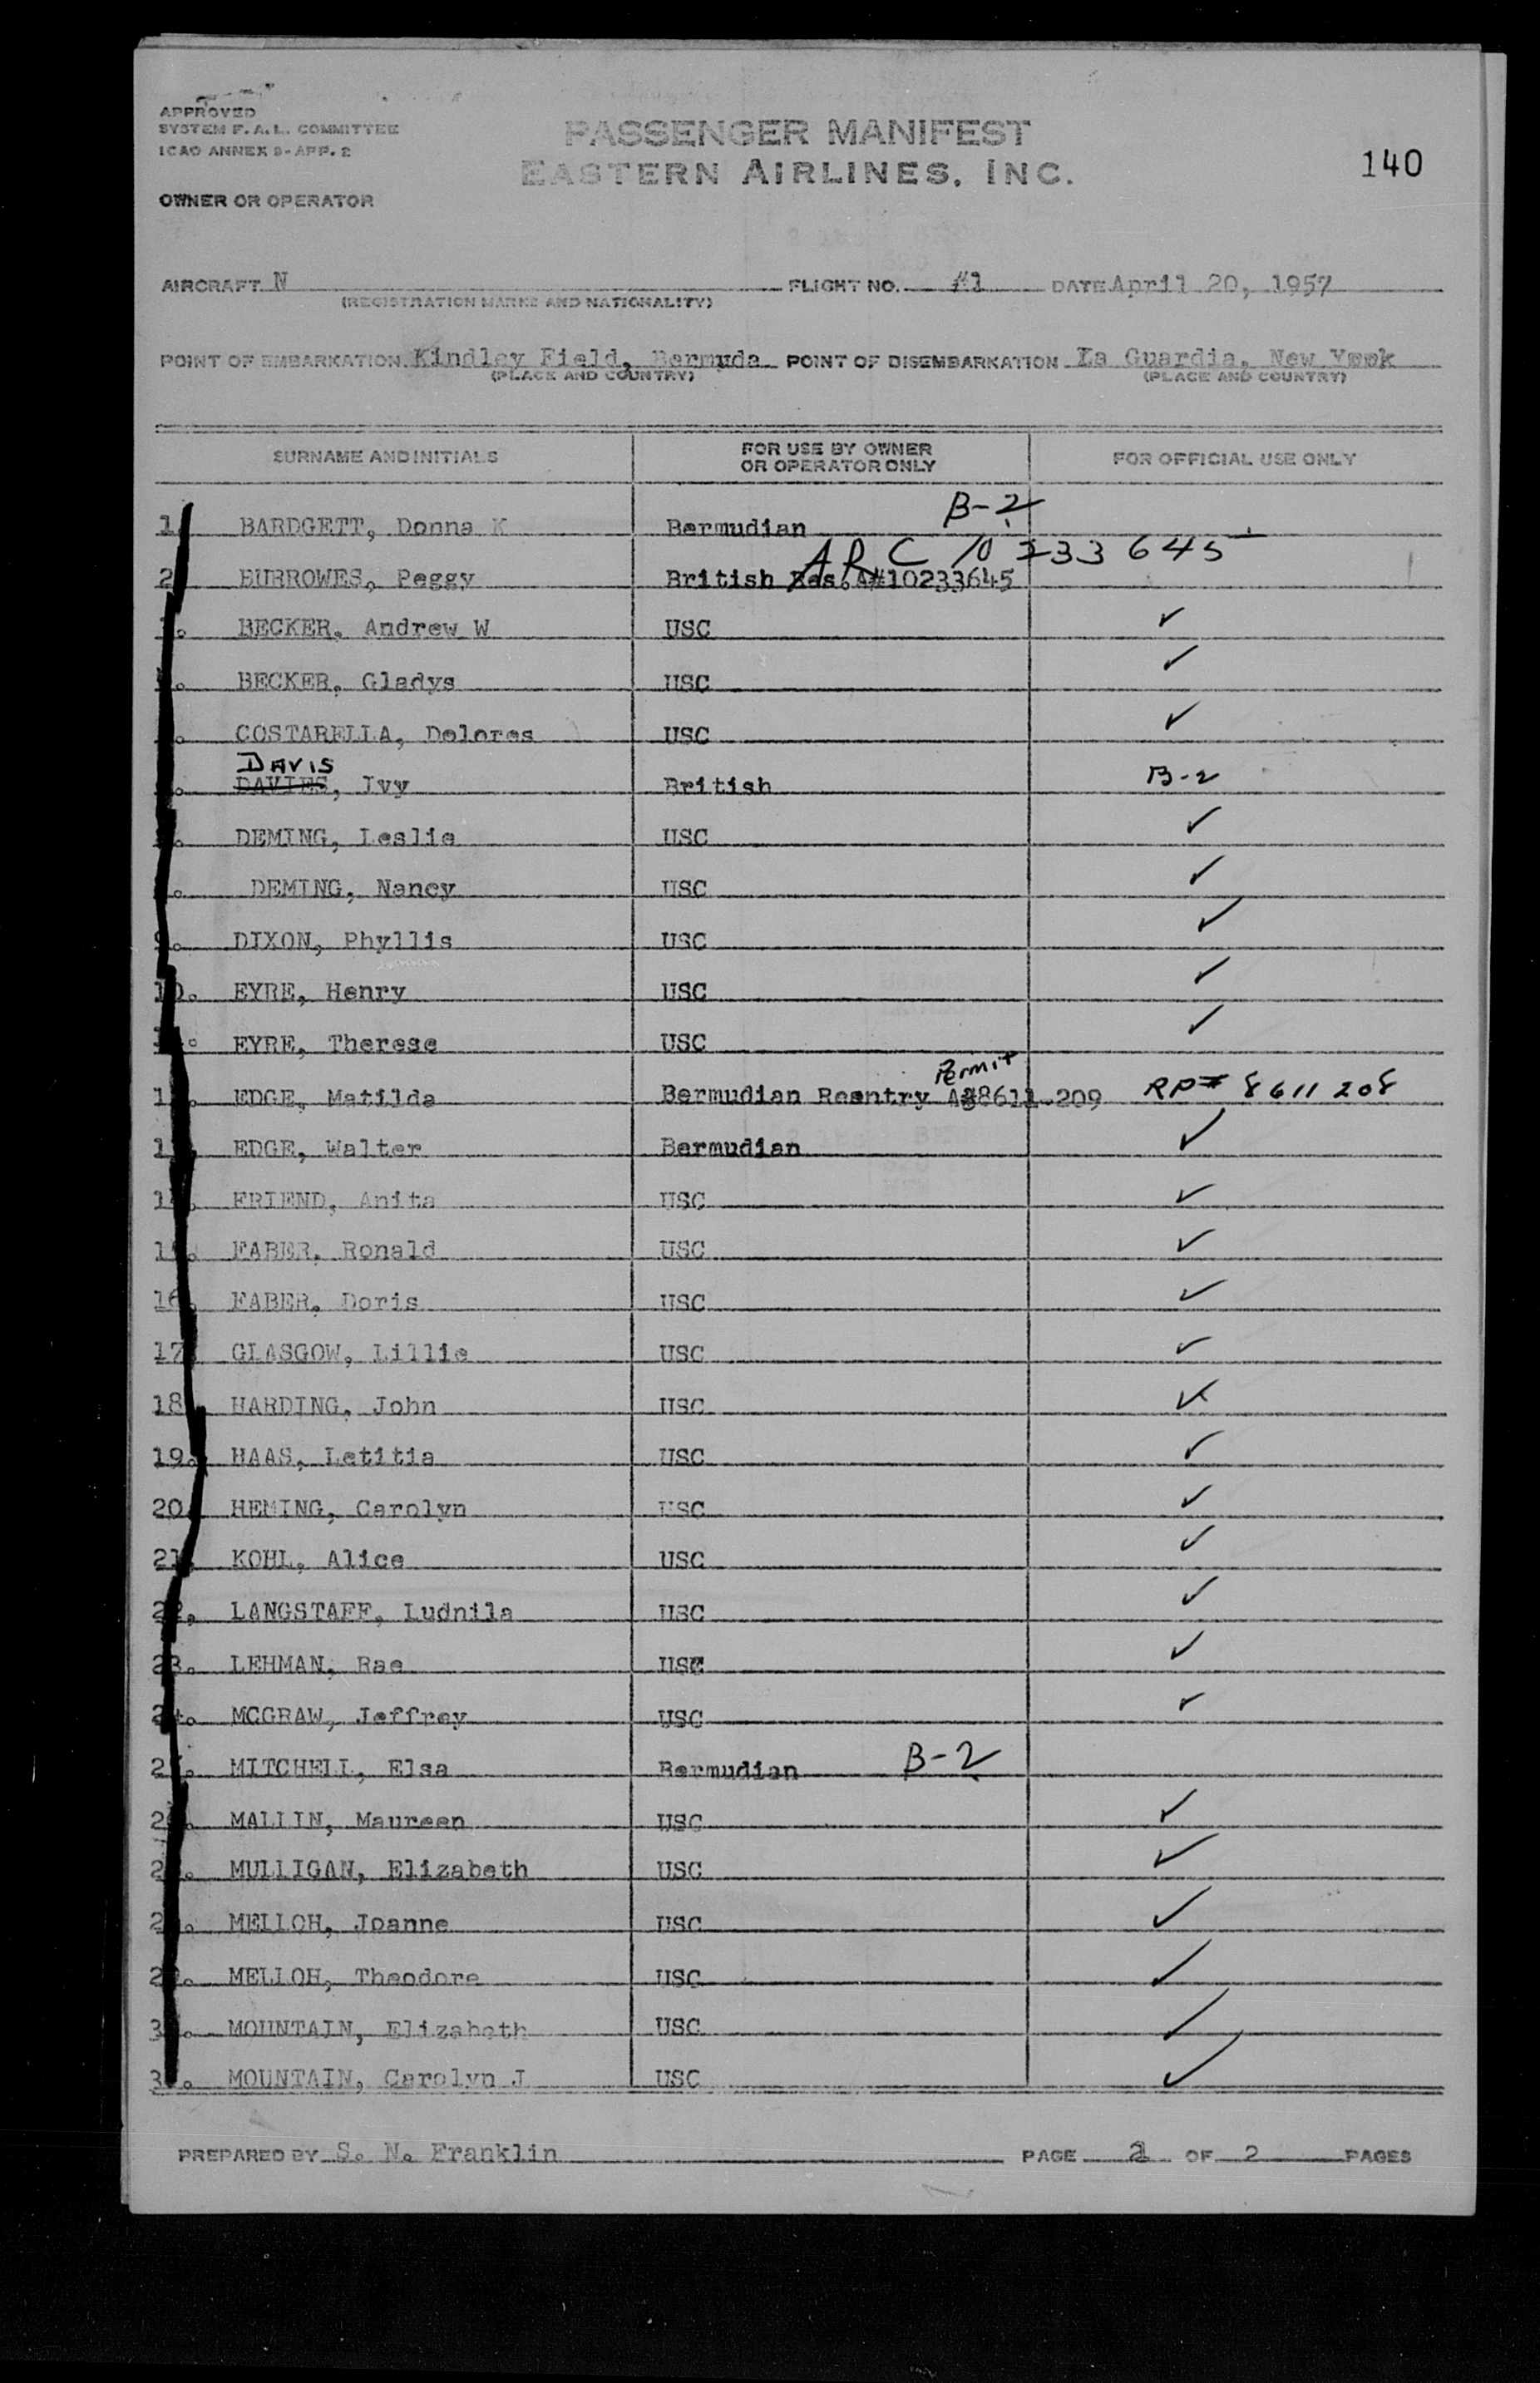 APPROVED
SYSTEM F. A. L. COMMITTEE
ICAO ANNEX 9-APP. 2
PASSENGER MANIFEST
EASTERN AIRLINES, INC.
140
OWNER OR OPERATOR
AIRCRAFT N FLIGHT NO. #1 DATE April 20, 1957
(REGISTRATION MARKS AND NATIONALITY)
POINT OF EMBARKATION Kindley Field, Bermuda POINT OF DISEMBARKATION La Guardia, New York
(PLACE AND COUNTRY) (PLACE AND COUNTRY)
SURNAME AND INITIALS FOR USE BY OWNER OR OPERATOR ONLY FOR OFFICIAL USE ONLY
1. BARDGETT, Donna K Bermudian B-2
ARC 10 233 645
2 BURROWES, Peggy British Res. A#10233645
BECKER, Andrew W USC ✓
BECKER, Gladys USC ✓
COSTARELLA, Delores USC ✓
DAVIS
DAVIES, Ivy British B-2
DEMING, Leslie USC ✓
DEMING, Nancy USC ✓
9. DIXON, Phyllis USC ✓
10. EYRE, Henry USC ✓
EYRE, Therese USC ✓
Permit
1. EDGE, Matilda Bermudian Reentry A#8611 209 RP# 8611 208
1. EDGE, Walter Bermudian ✓
14. FRIEND, Anita USC ✓
1. FABER, Ronald USC ✓
16. FABER, Doris USC ✓
17. GLASGOW, Lillie USC ✓
18 HARDING, John USC ✓
19. HAAS, Letitia USC ✓
20. HEMING, Carolyn USC ✓
21. KOHL, Alice USC ✓
22. LANGSTAFF, Ludnila USC ✓
23. LEHMAN, Rae USC ✓
24. MCGRAW, Jeffrey USC ✓
2. MITCHELL, Elsa Bermudian B-2
2. MALLIN, Maureen USC ✓
2. MULLIGAN, Elizabeth USC ✓
2. MELLOH, Joanne USC ✓
2. MELLOH, Theodore USC ✓
3. MOUNTAIN, Elizabeth USC ✓
3. MOUNTAIN, Carolyn J USC ✓
PREPARED BY S. N. Franklin PAGE 1 OF 2 PAGES